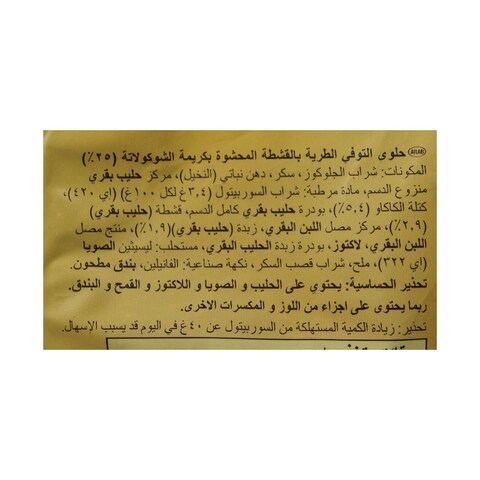 ARAB حلوى التوفي الطرية بالقشطة المحشوة بكريمة الشوكولاتة (٢٥٪)
المكونات: شراب الجلوكوز، سكر، دهن نباتي (النخيل)، مركز حليب بقري
منزوع الدسم، مادة مرطبة: شراب السوربيتول (٣,٤غ لكل ١٠٠غ) (إي ٤٢٠)،
كتلة الكاكاو (٥,٤٪)، بودرة حليب بقري كامل الدسم، قشطة (حليب بقري)
(٢,٩٪)، مركز مصل اللبن البقري، زبدة (حليب بقري)(١,٩٪)، منتج مصل
اللبن البقري، لاكتوز، بودرة زبدة الحليب البقري، مستحلب: ليسيثين الصويا
(إي ٣٢٢)، ملح، شراب قصب السكر، نكهة صناعية: الفانيلين، بندق مطحون.
تحذير الحساسية: يحتوي على الحليب و الصويا و اللاكتوز و القمح و البندق.
ربما يحتوي على اجزاء من اللوز و المكسرات الاخرى.
تحذير: زيادة الكمية المستهلكة من السوربيتول عن ٤٠غ في اليوم قد يسبب الإسهال.